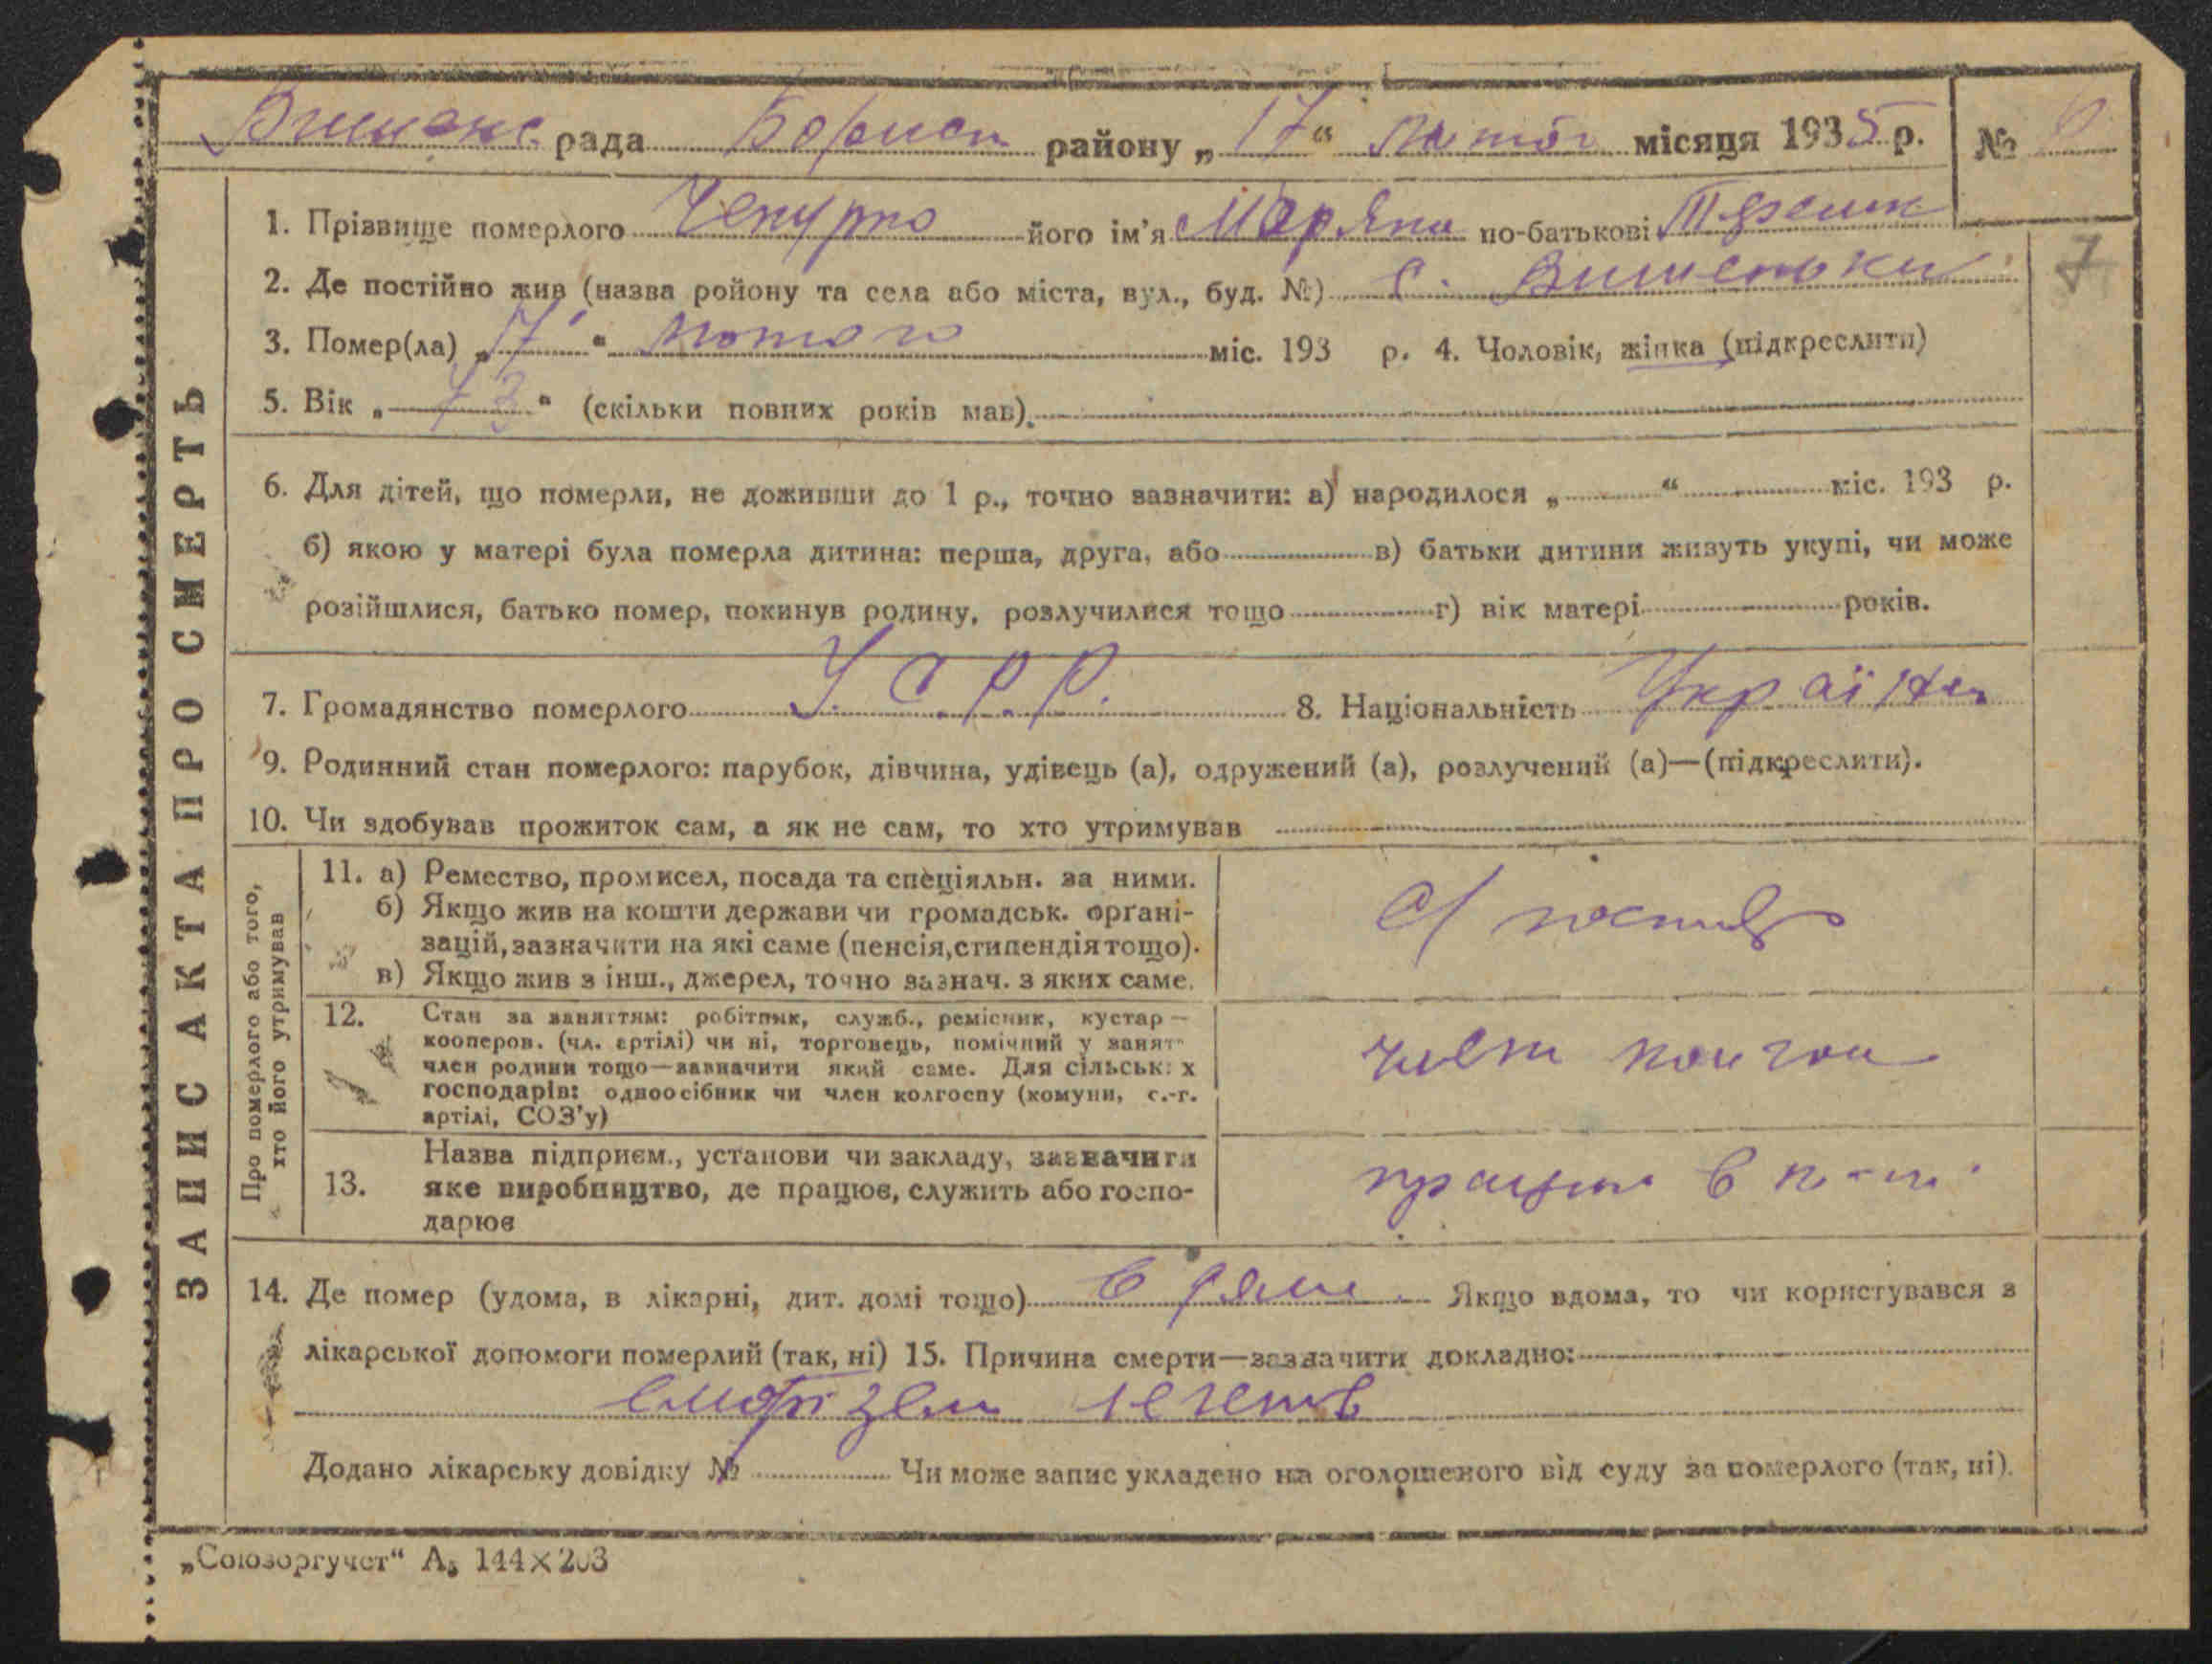 рада Борисп району „17“ Лютог місяця 1935 р. №
1. Прізвище померлого Чепурно його ім'я Мар'яна по-батькові
2. Де постійно жив (назва ройону та села або міста, вул., буд. №) с. Вишеньки
3. Помер(ла) „17“ лютого міс. 193 р. 4. Чоловік, жінка (підкреслити)
5. Вік „73“ (скільки повних років мав)
6. Для дітей, що померли, не доживши до 1 р., точно зазначити: а) народилося „ “ міс. 193 р.
б) якою у матері була померла дитина: перша, друга, або в) батьки дитини живуть укупі, чи може
розійшлися, батько помер, покинув родину, розлучилися тощо г) вік матері років.
7. Громадянство померлого У.С.Р.Р. 8. Національність Україн
9. Родинний стан померлого: парубок, дівчина, удівець (а), одружений (а), розлучений (а)—(підкреслити).
10. Чи здобував прожиток сам, а як не сам, то хто утримував
ЗАПИС АКТА ПРО СМЕРТЬ
Про померлого або того,
хто його утримував
11. а) Ремество, промисел, посада та спеціяльн. за ними.
б) Якщо жив на кошти держави чи громадськ. органі-
зацій, зазначити на які саме (пенсія, стипендія тощо).
в) Якщо жив з інш., джерел, точно зазнач. з яких саме.
12. Стан за заняттям: робітник, служб., ремісник, кустар—
кооперов. (чл. артілі) чи ні, торговець, помічний у занят
член родини тощо—зазначити який саме. Для сільськ: х
господарів: одноосібник чи член колгоспу (комуни, с.-г.
артілі, СОЗ'у)
член
13. Назва підприєм., установи чи закладу, зазначити
яке виробництво, де працює, служить або госпо-
дарює
в
14. Де помер (удома, в лікарні, дит. домі тощо) в дома. Якщо вдома, то чи користувався з
лікарської допомоги померлий (так, ні) 15. Причина смерти—зазначити докладно:
легенів
Додано лікарську довідку № Чи може запис укладено на оголошеного від суду за померлого (так, ні).
„Союзоргучет“ А₅ 144×203